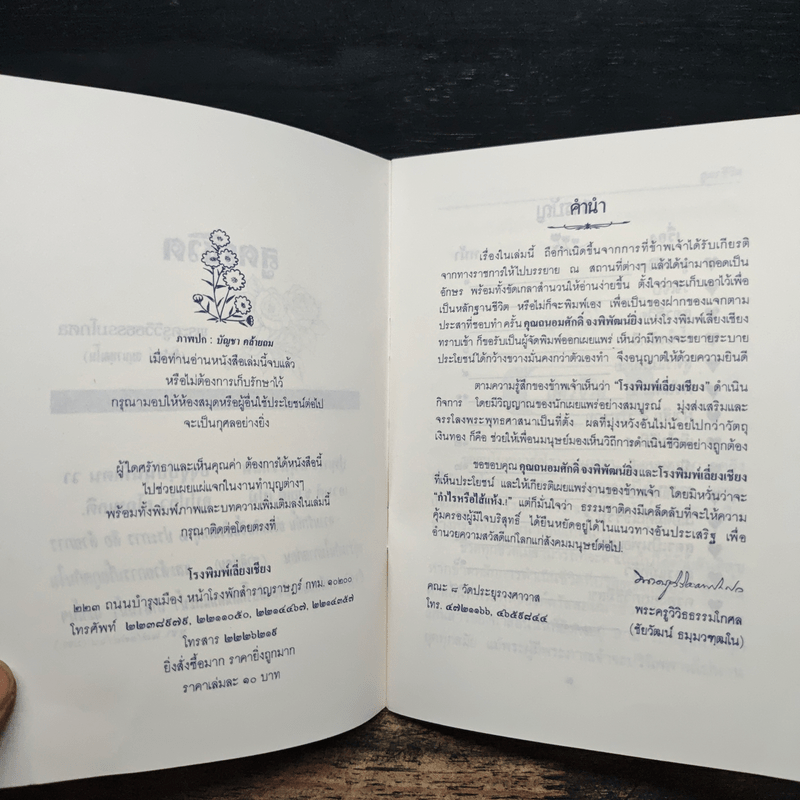 ภาพปก : บัญชา คล้ายถม
เมื่อท่านอ่านหนังสือเล่มนี้จบแล้ว
หรือไม่ต้องการเก็บรักษาไว้
กรุณามอบให้ห้องสมุดหรือผู้อื่นใช้ประโยชน์ต่อไป
จะเป็นกุศลอย่างยิ่ง
ผู้ใดศรัทธาและเห็นคุณค่า ต้องการได้หนังสือนี้
ไปช่วยเผยแผ่แจกในงานทำบุญต่างๆ
พร้อมทั้งพิมพ์ภาพและบทความเพิ่มเติมลงในเล่มนี้
กรุณาติดต่อโดยตรงที่
โรงพิมพ์เลี่ยงเชียง
๒๒๓ ถนนบำรุงเมือง หน้าโรงพักสำราญราษฎร์ กทม. ๑๐๒๐๐
โทรศัพท์ ๒๒๓๘๙๗๙, ๒๒๑๑๐๕๐, ๒๒๑๔๔๖๗, ๒๒๑๔๓๕๗
โทรสาร ๒๒๒๖๒๑๙
ยิ่งสั่งซื้อมาก ราคายิ่งถูกมาก
ราคาเล่มละ ๑๐ บาท
คำนำ
เรื่องในเล่มนี้ ถือกำเนิดขึ้นจากการที่ข้าพเจ้าได้รับเกียรติ
จากทางราชการให้ไปบรรยาย ณ สถานที่ต่างๆ แล้วได้นำมาถอดเป็น
อักษร พร้อมทั้งขัดเกลาสำนวนให้อ่านง่ายขึ้น ตั้งใจว่าจะเก็บเอาไว้เพื่อ
เป็นหลักฐานชีวิต หรือไม่ก็จะพิมพ์เอง เพื่อเป็นของฝากของแจกตาม
ประสาที่ชอบทำ ครั้น คุณถนอมศักดิ์ จงพิพัฒน์ยิ่ง แห่งโรงพิมพ์เลี่ยงเชียง
ทราบเข้า ก็ขอรับเป็นผู้จัดพิมพ์ออกเผยแพร่ เห็นว่ามีทางจะขยายระบาย
ประโยชน์ได้กว้างขวางมั่นคงกว่าตัวเองทำ จึงอนุญาตให้ด้วยความยินดี
ตามความรู้สึกของข้าพเจ้าเห็นว่า "โรงพิมพ์เลี่ยงเชียง" ดำเนิน
กิจการ โดยมีวิญญาณของนักเผยแพร่อย่างสมบูรณ์ มุ่งส่งเสริมและ
จรรโลงพระพุทธศาสนาเป็นที่ตั้ง ผลที่มุ่งหวังอันไม่น้อยไปกว่าวัตถุ
เงินทอง ก็คือ ช่วยให้เพื่อนมนุษย์มองเห็นวิถีการดำเนินชีวิตอย่างถูกต้อง
ขอขอบคุณ คุณถนอมศักดิ์ จงพิพัฒน์ยิ่ง และโรงพิมพ์เลี่ยงเชียง
ที่เห็นประโยชน์ และให้เกียรติเผยแพร่งานของข้าพเจ้า โดยมิหวั่นว่าจะ
"กำไรหรือไส้แห้ง.!" แต่ก็มั่นใจว่า ธรรมชาติคงมีเคล็ดลับที่จะให้ความ
คุ้มครองผู้มีใจบริสุทธิ์ ได้ยืนหยัดอยู่ได้ในแนวทางอันประเสริฐ เพื่อ
อำนวยความสวัสดีแก่โลกแก่สังคมมนุษย์ต่อไป.
คณะ ๘ วัดประยุรวงศาวาส
โทร. ๔๗๒๑๑๖๖, ๔๖๕๙๘๔๔
พระครูวิวิธธรรมโกศล
(ชัยวัฒน์ ธมฺมวฑฺฒโน)